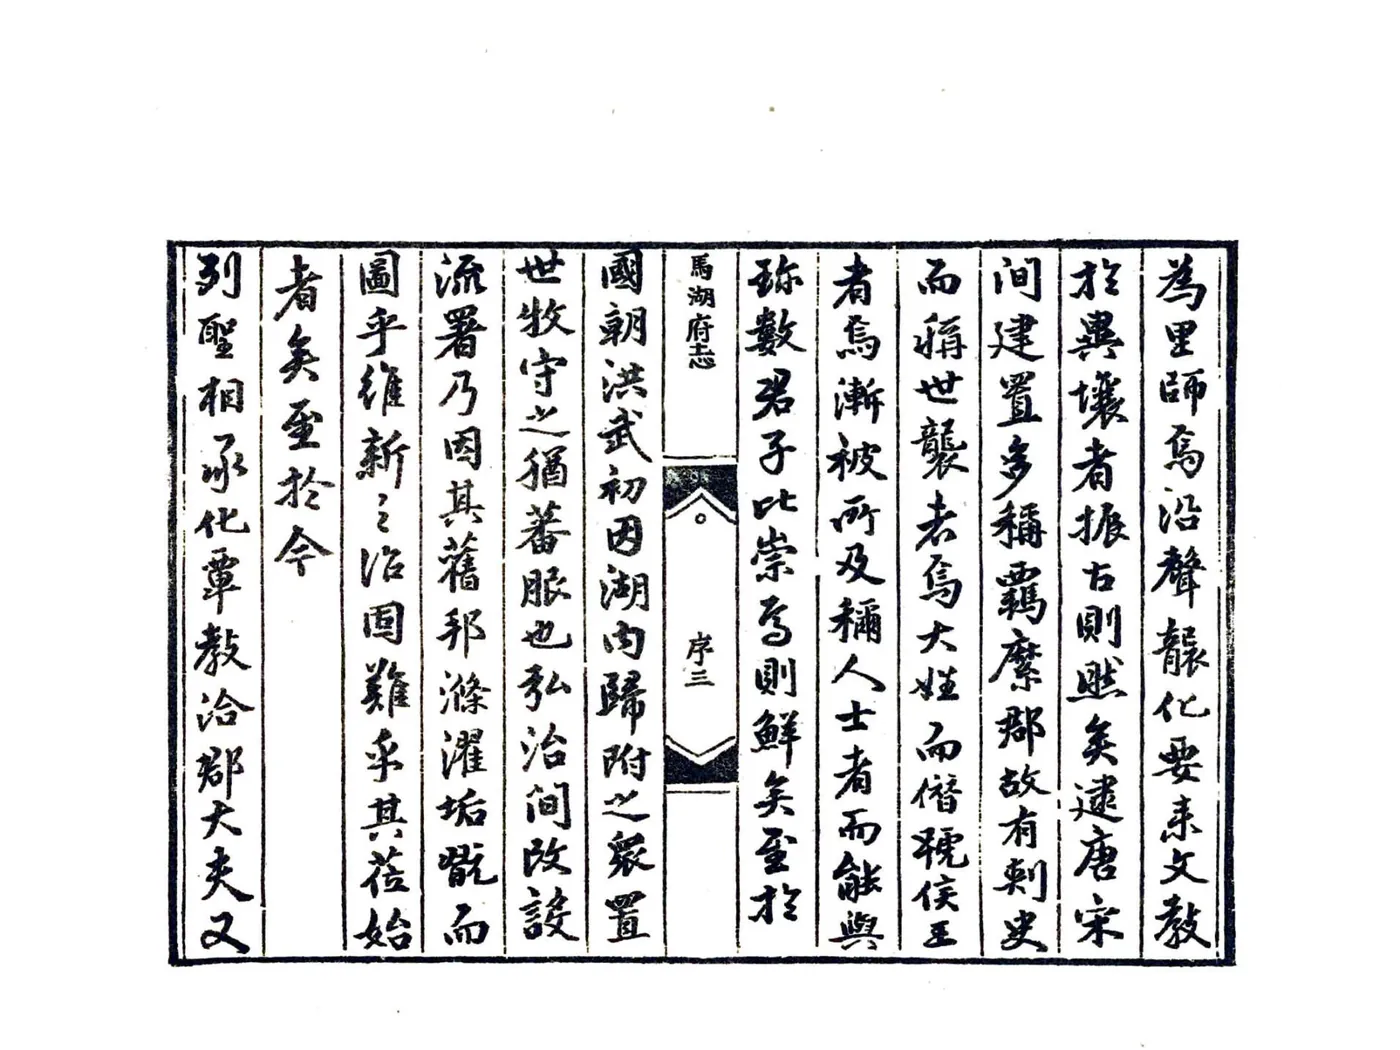 為里師焉沿聲襲化要耒文教
於異壤者振古則然矣逮唐宋
间建置多稱羈縻郡故有刺史
而稱世襲者焉大姓而僭號侯王
者焉漸被所及稱人士者而能與
珎數君子比崇焉則鮮矣至於
馬湖府志
序三
國朝洪武初因湖内歸附之衆置
世牧守之猶蕃服也弘治间改設
流署乃因其舊邦滌濯垢翫而
圖乎維新之治固難乎其莅始
者矣至於今
列聖相承化覃教洽郡大夫又